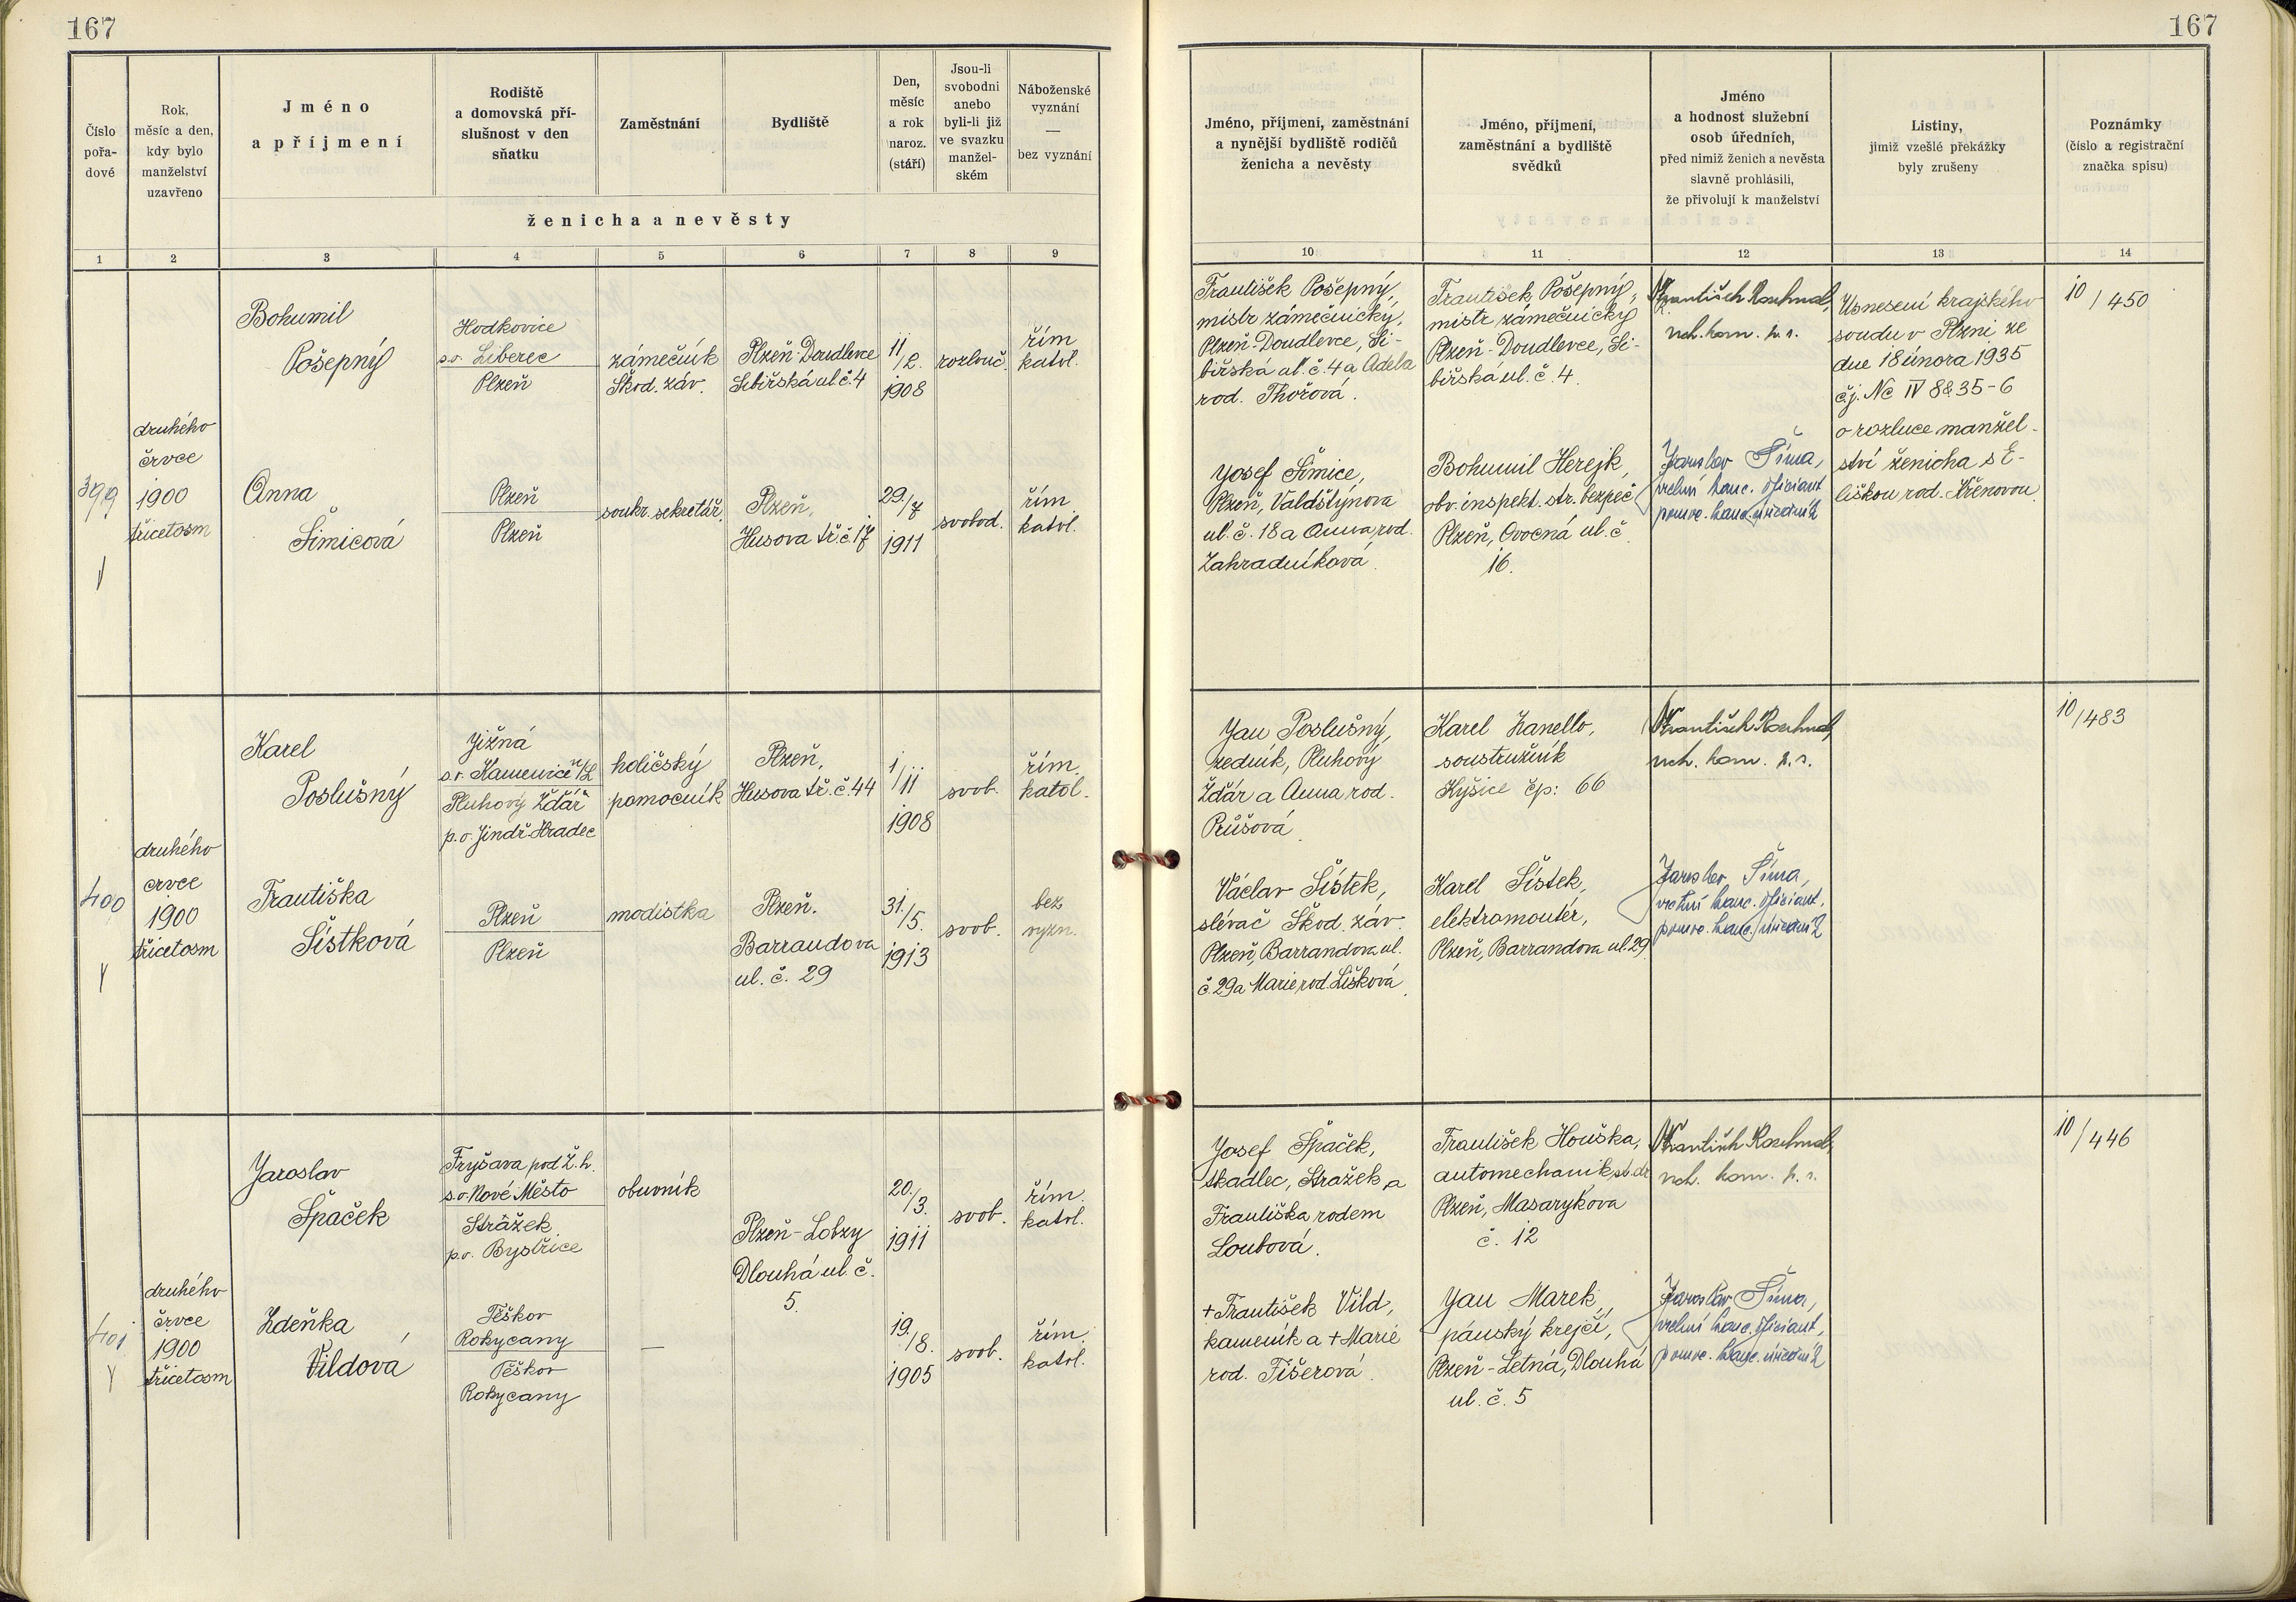 167
167
Číslo
pořa-
dové
Rok,
měsíc a den,
kdy bylo
manželství
uzavřeno
Jméno
a příjmení
Rodiště
a domovská pří-
slušnost v den
sňatku
Zaměstnání
Bydliště
Den,
měsíc
a rok
naroz.
(stáří)
Jsou-li
svobodni
anebo
byli-li již
ve svazku
manžel-
ském
Náboženské
vyznání
—
bez vyznání
ženicha a nevěsty
1 2 3 4 5 6 7 8 9
Jméno, příjmení, zaměstnání
a nynější bydliště rodičů
ženicha a nevěsty
Jméno, příjmení,
zaměstnání a bydliště
svědků
Jméno
a hodnost služební
osob úředních,
před nimiž ženich a nevěsta
slavně prohlásili,
že přivolují k manželství
Listiny,
jimiž vzešlé překážky
byly zrušeny
Poznámky
(číslo a registrační
značka spisu)
10 11 12 13 14
399
druhého
črvce
1900
třicetosm
Bohumil
Pošepný
Hodkovice
s.o. Liberec
Plzeň
zámečník
Škod. záv.
Plzeň-Doudlevce
Sibiřská ul č. 4
11
/2.
1908
rozlouč.
řím
katol.
Anna
Šimicová
Plzeň
Plzeň
soukr. sekretář.
Plzeň,
Husova tř. č. 17
29./7
1911
svobod.
řím
katol.
František Pošepný,
mistr zámečnický,
Plzeň-Doudlevce, Si-
biřská ul. č. 4 a Adela
rod. Thořová.
Josef Šimice,
Plzeň, Valdštýnova
ul. č. 18 a Anna rod.
Zahradníková.
František Pošepný,
mistr zámečnický
Plzeň-Doudlevce, Si-
biřská ul. č. 4.
Bohumil Herejk,
obv. inspekt. str. bezpeč.
Plzeň, Ovocná ul. č.
16.
František
vrch. kom. p. s.
Jaroslav Šíma,
vrchní kanc. oficiant
pomoc. kanc. úředník
Usnesení krajského
soudu v Plzni ze
dne 18 února 1935
č.j. Nc IV 8&35-6
o rozluce manžel-
ství ženicha s E-
liškou rod. Křenovou.
10/450
400
druhého
črvce
1900
třicetosm
Karel
Poslušný
Jižná
s.o. Kamenice n/L
Pluhový Žďár
p.o. Jindř. Hradec
holičský
pomocník
Plzeň,
Husova tř. č. 44
1
/11
1908
svob.
řím.
katol.
Františka
Šístková
Plzeň
Plzeň
modistka
Plzeň.
Barrandova
ul. č. 29
31./5.
1913
svob.
bez
vyzn.
Jan Poslušný,
zedník, Pluhový
Žďár a Anna rod.
Průšová.
Václav Šístek,
slévač Škod. záv.
Plzeň, Barrandova ul.
č. 29 a Marie rod. Lišková.
Karel Zanello,
soustružník
Kyšice čp: 66
Karel Šístek,
elektromontér,
Plzeň, Barrandova ul. 29
František
vrch. kom. p. s.
Jaroslav Šíma,
vrchní kanc. oficiant,
pomoc. kanc. úředník
10/483
401
druhého
črvce
1900
třicetosm
Jaroslav
Špaček
Fryšava pod Ž. h.
s.o. Nové Město
Strážek
p.o. Bystřice
obuvník
Plzeň-Lobzy
Dlouhá ul. č.
5.
20./3.
1911
svob.
řím.
katol.
Zdeňka
Vildová
Těškov
Rokycany
Těškov
Rokycany
—
19./8.
1905
svob.
řím.
katol.
Josef Špaček,
tkadlec, Stražek a
Františka rodem
Loubová.
+František Vild,
kameník a +Marie
rod. Fišerová.
František Houška,
automechanik st. dr.
Plzeň, Masarykova
č. 12
Jan Marek,
pánský krejčí,
Plzeň-Letná, Dlouhá
ul. č. 5
František
vrch. kom. p. s.
Jaroslav Šíma,
vrchní kanc. oficiant,
pomoc. kanc. úředník
10/446